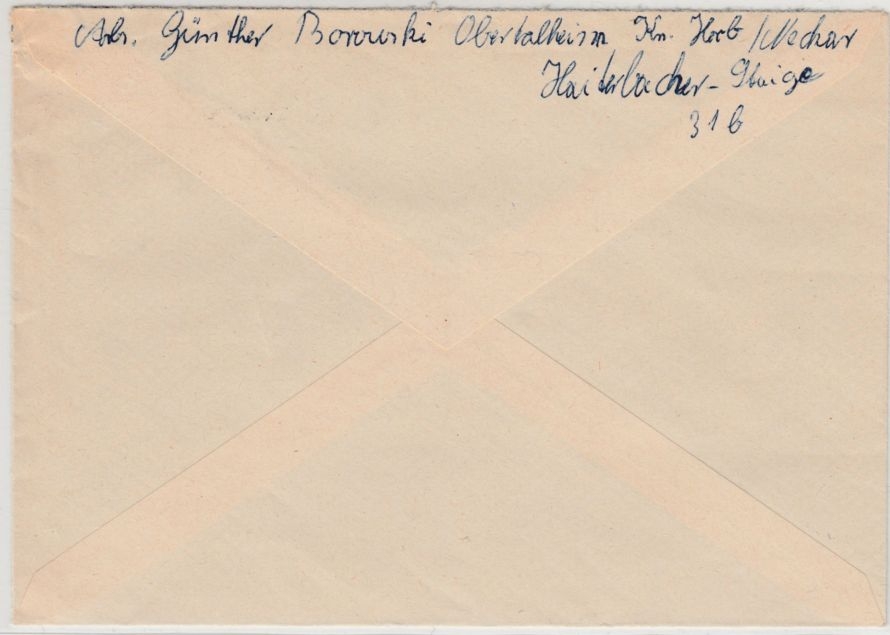 Abs. Günther Borowski Obertalheim Kr. Horb / Neckar
Haiterbacher-Staige
31 b